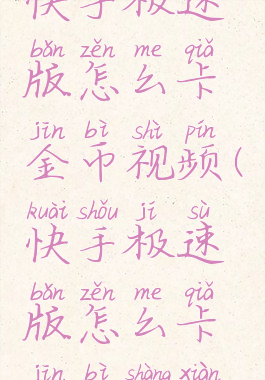 快手极速
bǎn zěn me qiǎ
版怎么卡
jīn bì shì pín
金币视频(
kuài shǒu jí sù
快手极速
bǎn zěn me qiǎ
版怎么卡
jīn bì shàng xiàn